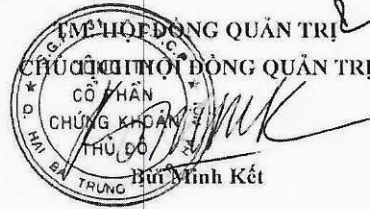 TM. HỘI ĐỒNG QUẢN TRỊ
CHỦ TỊCH HỘI ĐỒNG QUẢN TRỊ
CÔNG TY
CỔ PHẦN
CHỨNG KHOÁN
THỦ ĐÔ
Q. HAI BÀ TRƯNG
Bùi Minh Kết